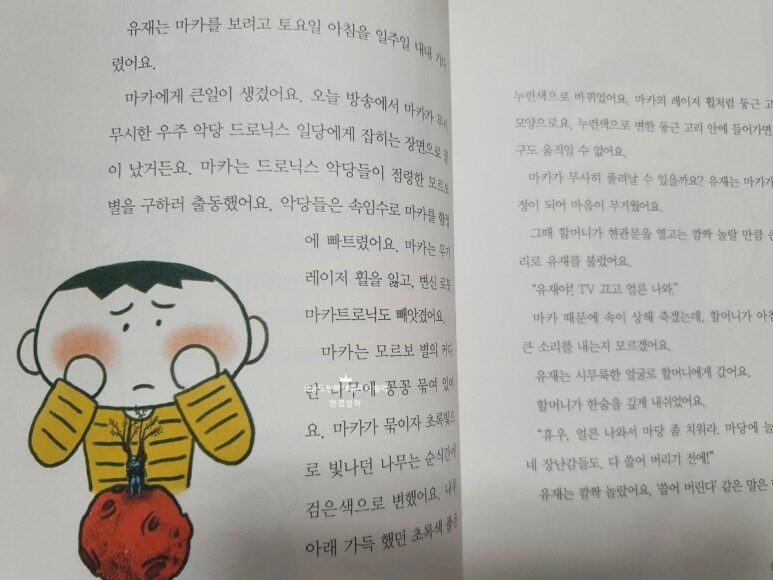 유재는 마카를 보려고 토요일 아침을 일주일 내내 기다
렸어요.
마카에게 큰일이 생겼어요. 오늘 방송에서 마카가 무시
무시한 우주 악당 드로닉스 일당에게 잡히는 장면으로 끝
이 났거든요. 마카는 드로닉스 악당들이 점령한 모르보
별을 구하러 출동했어요. 악당들은 속임수로 마카를 함정
에 빠트렸어요. 마카는 무기
레이저 휠을 잃고, 변신 로봇
마카트로닉도 빼앗겼어요.
마카는 모르보 별의 커다
란 나무에 꽁꽁 묶여 있어
요. 마카가 묶이자 초록빛으
로 빛나던 나무는 순식간에
검은색으로 변했어요. 나무
아래 가득 했던 초록색 풀은
연경엄마
누런색으로 바뀌었어요. 마카의 레이저 휠처럼 둥근 고
모양으로요. 누런색으로 변한 둥근 고리 안에 들어가면
구도 움직일 수 없어요.
마카가 무사히 풀려날 수 있을까요? 유재는 마카가
정이 되어 마음이 무거웠어요.
그때 할머니가 현관문을 열고는 깜짝 놀랄 만큼 큰
리로 유재를 불렀어요.
"유재야! TV 끄고 얼른 나와."
마카 때문에 속이 상해 죽겠는데, 할머니가 아침
큰 소리를 내는지 모르겠어요.
유재는 시무룩한 얼굴로 할머니에게 갔어요.
할머니가 한숨을 깊게 내쉬었어요.
"휴우, 얼른 나와서 마당 좀 치워라. 마당에 늘
네 장난감들도, 다 쓸어 버리기 전에!"
유재는 깜짝 놀랐어요. '쓸어 버린다' 같은 말은